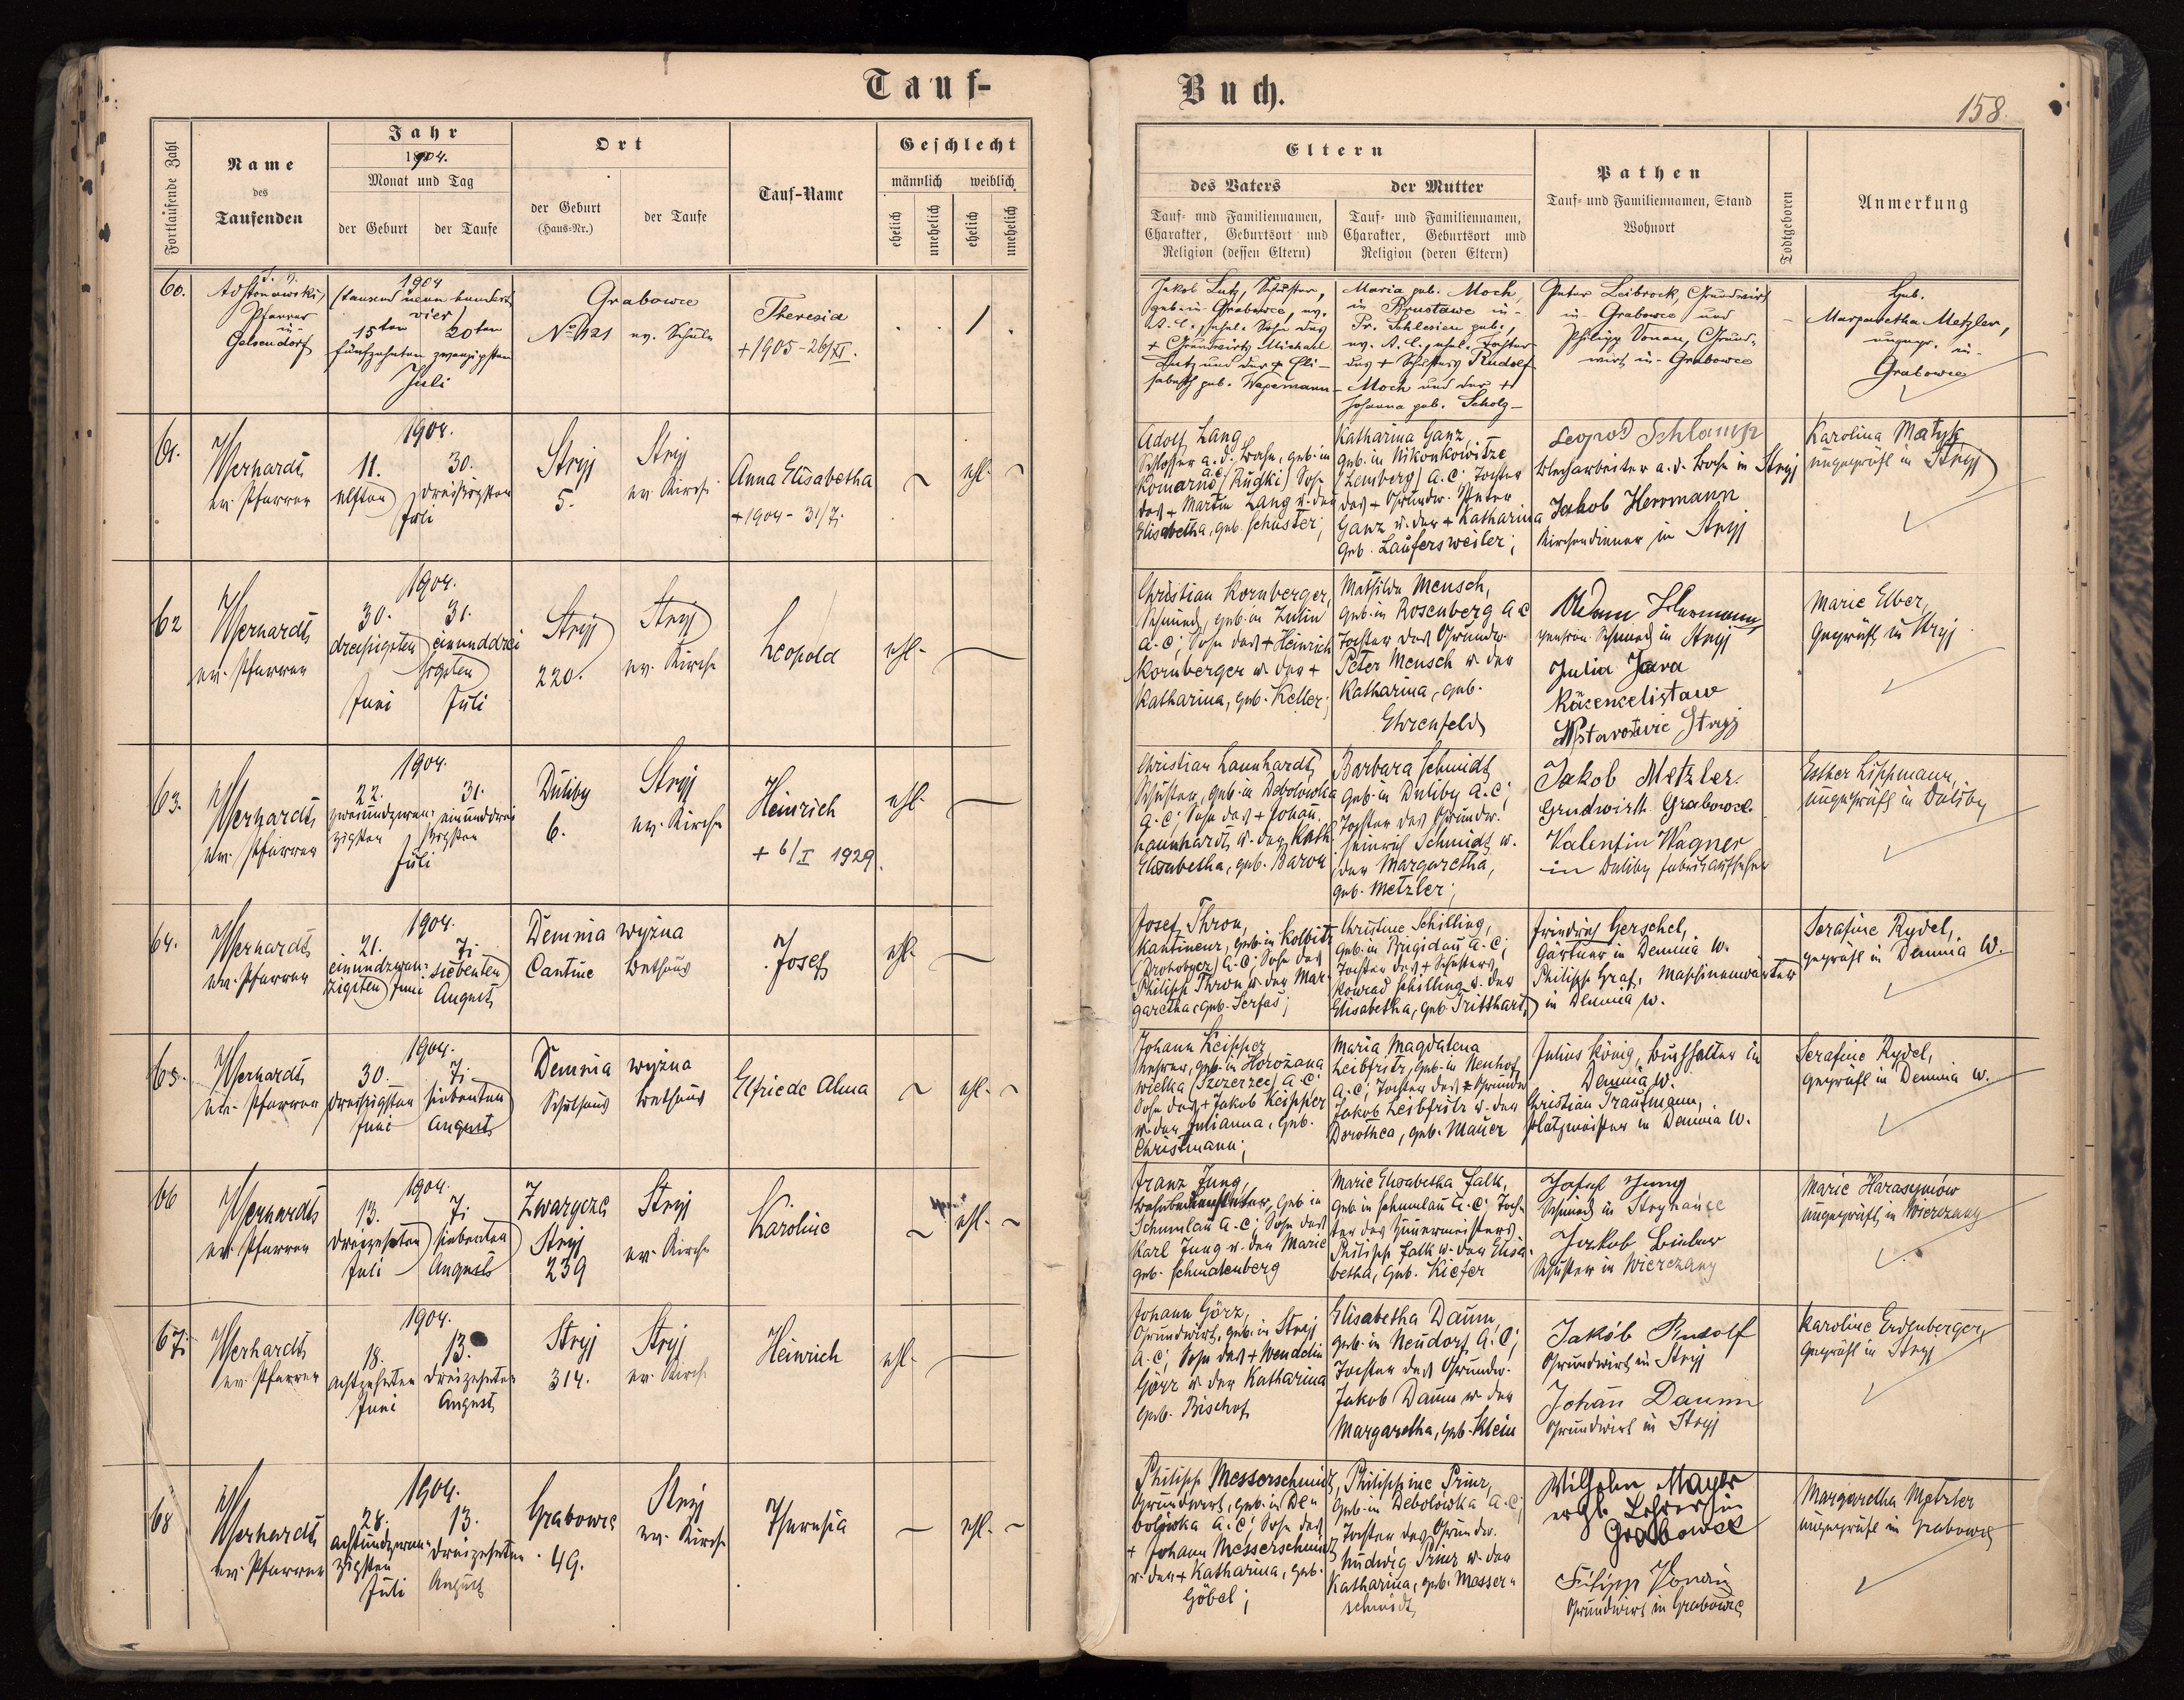 Tauf-
Fortlaufende Zahl
Name
des
Taufenden
Jahr
1904.
Monat und Tag
der Geburt
der Taufe
Ort
der Geburt
(Haus-Nr.)
der Taufe
Tauf-Name
Geschlecht
männlich
weiblich
ehelich
unehelich
ehelich
unehelich
60.
Pfarrer
in
Gelsendorf
1904
(tausend neun hundert
vier)
15ten 20ten
fünfzehnten zwanzigsten
Juli
Grabowce
No 121 ev. Schule
Theresia
+1905-26/XI.
1
61.
ev. Pfarrer
1904.
11. 30.
elften dreißigsten
Juli
Stryj
5.
Stryj
ev. Kirche
Anna Elisabetha
+1904-31/7.
ehl.
62
ev. Pfarrer
1904.
30. 31.
dreißigsten einunddrei
ßigsten
Juni Juli
Stryj
220.
Stryj
ev. Kirche
Leopold
ehl.
63.
ev. Pfarrer
1904.
22. 31.
zweiundzwan- einunddrei
zigsten ßigsten
Juli
Duliby
6.
Stryj
ev. Kirche
Heinrich
+ 6/I 1929.
ehl.
64.
ev. Pfarrer
1904.
21. 7.
einundzwan- siebenten
zigsten Juni August
Demnia wyżna
Cantine Bethaus
Josef
ehl.
65.
ev. Pfarrer
1904.
30. 7.
dreißigsten siebenten
Juni August
Demnia wyżna
Schulhaus Bethaus
Elfriede Alma
ehl.
66
ev. Pfarrer
1904.
13. 7.
dreizehnten siebenten
Juli August
Stryj
239
Stryj
ev. Kirche
Karoline
ehl.
67.
ev. Pfarrer
1904.
18. 13.
achtzehnten dreizehnten
Juni August
Stryj
314.
Stryj
ev. Kirche
Heinrich
ehl.
68
ev. Pfarrer
1904.
28. 13.
achtundzwan- dreizehnten
zigsten
Juli August
Grabowce
49.
Stryj
ev. Kirche
Theresia
ehl.
Buch.
158.
Eltern
des Vaters
der Mutter
Tauf- und Familiennamen,
Charakter, Geburtsort und
Religion (dessen Eltern)
Tauf- und Familiennamen,
Charakter, Geburtsort und
Religion (deren Eltern)
Pathen
Tauf- und Familiennamen, Stand
Wohnort
Todtgeboren
Anmerkung
Jakob Lutz, Schuster,
geb. in Grabowce, ev.
A. C., ehel. Sohn des
+ Grundwirts Michael
Lutz und der + Eli-
sabeth geb. Wagemann
Maria geb. Moch,
in Brustawe in
Pr. Schlesien geb.,
ev. A. C., ehel. Tochter
des + Schusters Rudolf
Moch und der +
Johanna geb. Scholz
Peter Leibrock, Grundwirt
in Grabowce und
Philipp Vonau, Grund-
wirt in Grabowce
Heb.
Margaretha Metzler,
ungepr. in
Grabowce
Adolf Lang
Schlosser a. d. Bahn, geb. in
Komarno (Rudki) A.C. Sohn
des + Martin Lang u. der
Elisabetha, geb. Schuster;
Katharina Ganz,
geb. in Nikonkowitze
(Lemberg) A. C; Tochter
des + Grundw. Peter
Ganz u. der + Katharina
geb. Laufersweiler;
Leopold Schlamp
Jakob Herrmann
Kirchendiener in Stryj
Karolina Matyk,
ungeprüft in Stryj
Christian Kornberger,
Schmied, geb. in
A. C; Sohn des + Heinrich
Kornberger u. der +
Katharina, geb. Keller;
Mathilde Mensch,
geb. in Rosenberg A C
Tochter des Grundw.
Peter Mensch u. der
Katharina, geb.
Ehrenfeld
Adam Hermann,
pension. Schmied in Stryj
Julia
Stryj
Marie Elber,
geprüft in Stryj
Christian Launhardt,
Schuster, geb. in Debolowka
A. C; Sohn des + Johann
Launhardt u. der Kath.
Elisabetha, geb. Baron
Barbara Schmidt,
geb. in Duliby A. C;
Tochter des Grundw.
Heinrich Schmidt u.
der Margaretha,
geb. Metzler;
Jakob Metzler.
Grundwirth Grabowce
Valentin Wagner
in Duliby Fabriksaufseher
Esther Lippmann,
ungeprüft in Duliby
Josef Thron,
Kantineur, geb. in
(Drohobycz) A. C; Sohn des
Philipp Thron u. der Mar-
garetha, geb. Serfas;
Christine Schilling,
geb. in Brigidau A. C;
Tochter des + Schusters
Konrad Schilling u. der
Elisabetha, geb. Tritthart,
Friedrich Herschel,
Gärtner in Demnia W.
Philipp Graf, Maschinenwärter
in Demnia W.
Serafine Rydel,
geprüft in Demnia W.
Johann Keipper
Lehrer, geb. in Horożana
wielka A. C.
Sohn des + Jakob Keipper
u. der Julianna, geb.
Christmann;
Maria Magdalena
Leibfritz, geb. in Neuhof
A. C; Tochter des Grundw.
Jakob Leibfritz u. der
Dorothea, geb. Mauer
Julius König, Buchhalter in
Demnia W.
Christian Trautmann,
Platzmeister in Demnia W.
Serafine Rydel,
geprüft in Demnia W.
Franz Jung,
geb. in
Schumlau A. C; Sohn des
Karl Jung u. der Marie
geb. Schudenberg
Marie Elisabetha Falk,
geb. in Schumlau A. C; Toch-
ter des Zimmermeisters
Philipp Falk u. der Elisa-
betha, geb. Kiefer
Josef Jung
Schmied in
Jakob
Schuster in Wierczany
Marie Harasymów
ungeprüft in Wierczany
Johann Görz,
Grundwirt, geb. in Stryj
A. C; Sohn des + Wendelin
Görz u. der Katharina
geb. Bischof
Elisabetha Daum,
geb. in Neudorf A. C;
Tochter des Grundw.
Jakob Daum u. der
Margaretha, geb. Klein
Jakób Rudolf
Grundwirt in Stryj
Johann Daum
Grundwirt in Stryj
Karoline Erdenberger,
geprüft in Stryj
Philipp Messerschmidt,
Grundwirt, geb. in De-
bolowka A. C; Sohn des
+ Johann Messerschmidt
u. der + Katharina, geb.
Göbel;
Philippine Prinz,
geb. in Debolowka A. C;
Tochter des Grundw.
Ludwig Prinz u. der
Katharina, geb. Messer-
schmidt
Wilhelm Mayer
evgl. Lehrer in
Grabowce
Filipp Vonau
Grundwirt in Grabowce
Margaretha Metzler
ungeprüft in Grabowce